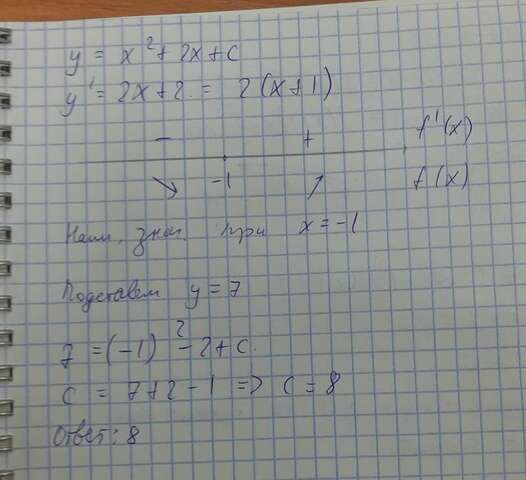 y = x² + 2x + c
y' = 2x + 2 = 2(x + 1)
− + f'(x)
↘ -1 ↗ f(x)
Наим. знач. при x = -1
Подставем y = 7
7 = (-1)² - 2 + c.
c = 7 + 2 - 1 => c = 8
Ответ: 8